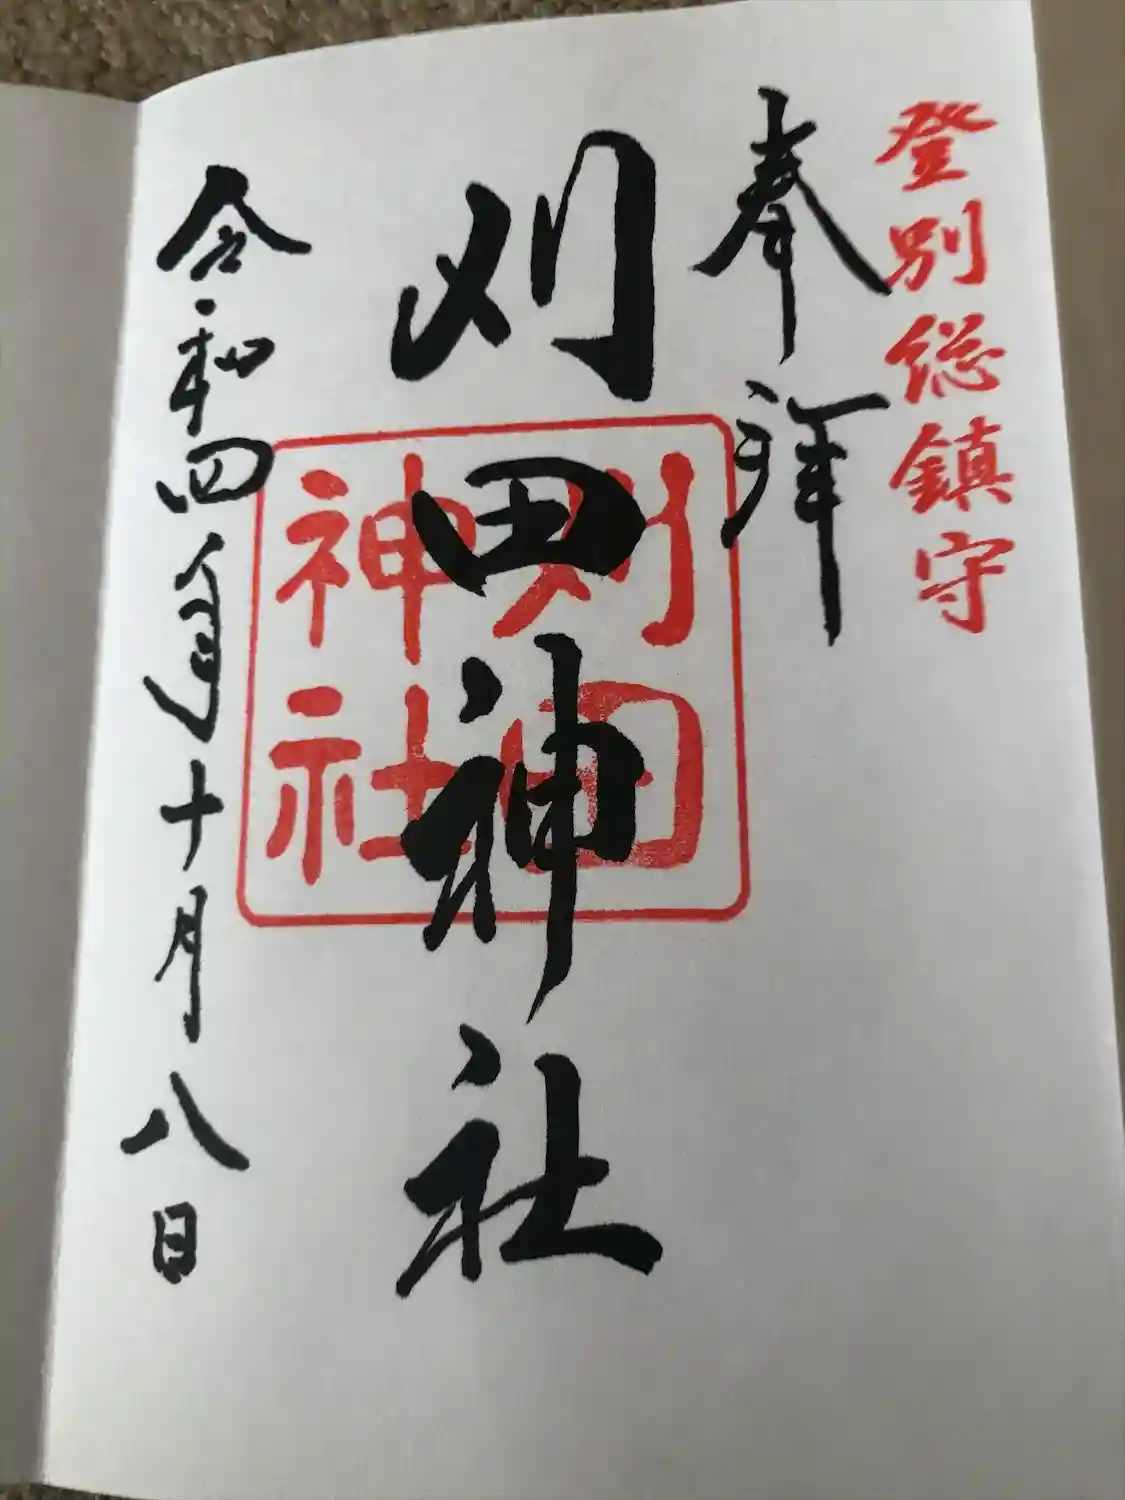 登別総鎮守
奉拝
刈田神社
刈田
神社
令和四年十月八日